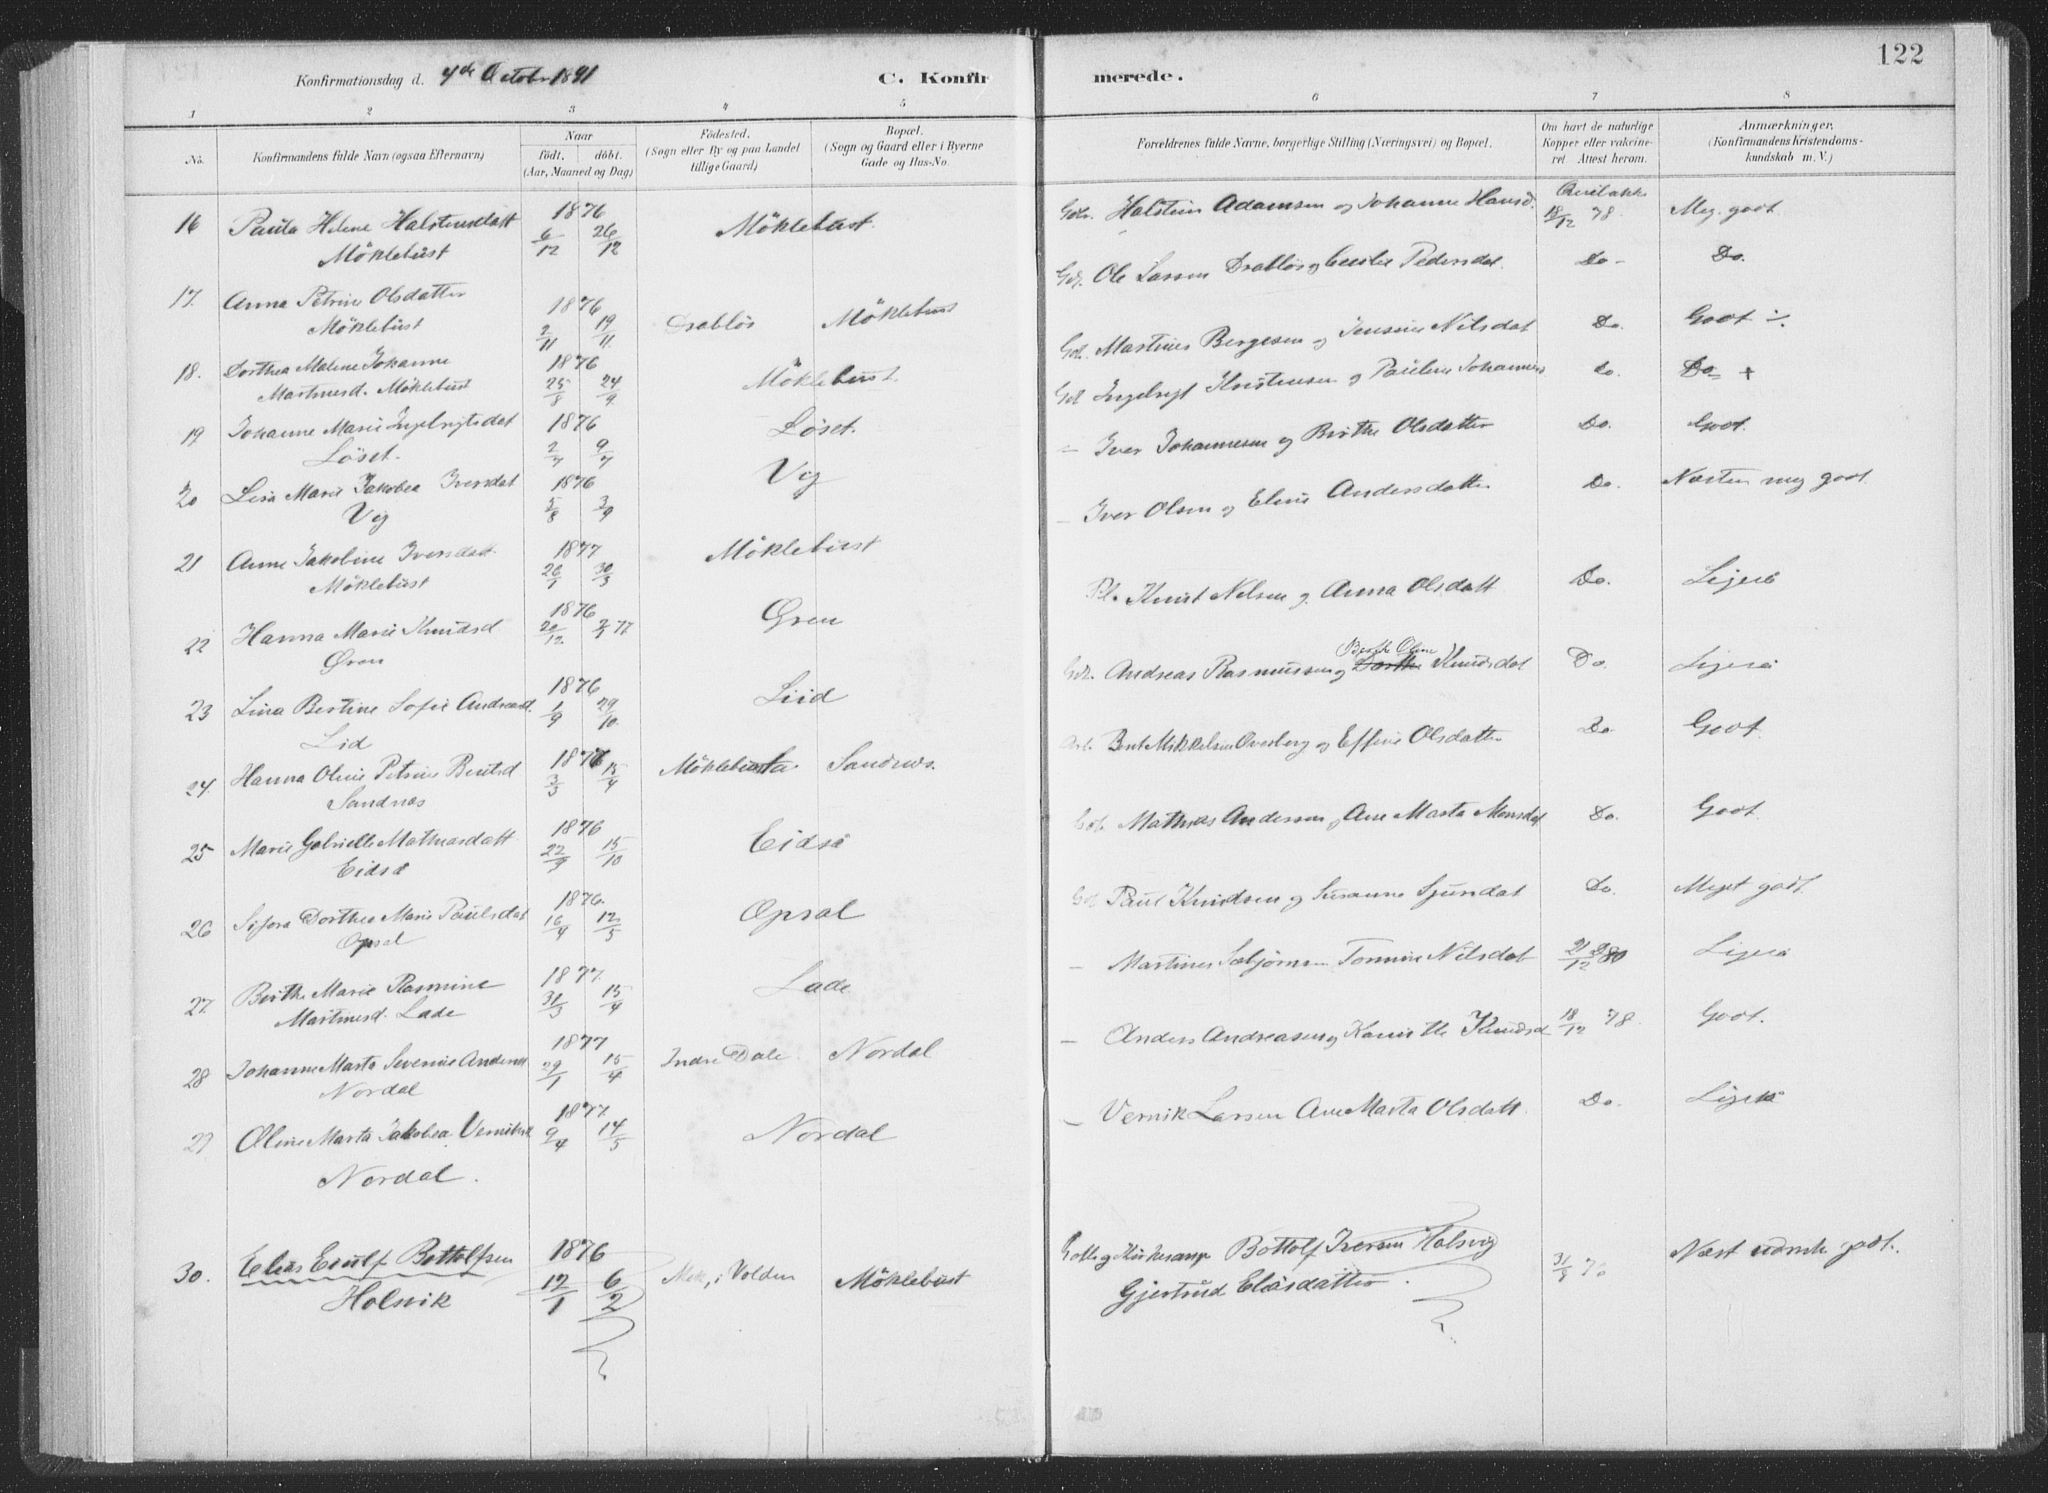 122
Konfirmationsdag d. 4de Octobr 1891
C. Konfirmerede.
1 2 3 4 5 6 7 8
No.
Konfirmandens fulde Navn (ogsaa Efternavn)
Naar
födt, döbt.
(Aar, Maaned og Dag)
Födested.
(Sogn eller By og paa Landet
tillige Gaard)
Bopæl.
(Sogn og Gaard eller i Byerne
Gade og Hus-No.
Forældrenes fulde Navne, borgerlige Stilling (Næringsvei) og Bopæl.
Om havt de naturlige
Kopper eller vakcine-
ret. Attest herom.
Anmærkninger.
(Konfirmandens Kristendoms-
kundskab m. V.)
16 Paula Helene Halstensdatt 1876 6/12 26/12 Möklebust. Halstein Adamsen og Johanne Hansd. 18/12 78. Meg. godt
Möklebust
17. Anna Petrine Olsdatter 1876 2/11 19/11 Drabløs Möklebust Ole Larsen Drabløs og Pedersdat. Do- Do.
Möklebust
18. Dorthea Malene Johanne 1876 25/8 24/9 Möklebust. Martinus Bergesen og Jensine Nilsdat Do. Godt ÷
Martinusd. Möklebust
19 Johanne Marie Ingebrigtsdat 1876 2/7 9/7 Löset. Ingebrigt Kristensen og Pauline Johannesd do. Do +
Löset.
20 Lisa Marie Jakobea Iversdat 1876 5/8 3/9 Vig - Iver Johannesen og Birthe Olsdatter Do. Godt.
Vig
21 Anne Jakobine Iversdatt. 1877 26/1 30/3 Möklebust - Iver Olsen og Eline Andersdatter Do. Næsten meg godt
Möklebust
22 Hanna Marie Knudsd 1876 20/12 77 Øren Pl. Knut Nilsen og Anna Olsdatt Do. Ligeså
Øren
23 Lina Bertine Sofie Andreasd. 1876 1/9 29/10. Liid Andreas Rasmussen og Berthe Oline Knudsdat Do. Ligeså
Lid
24. Hanna Oline Petrine Bentsd 1876 3/3 15/4 Sandnes. Bent Mikkelsen Overberg og Effine Olsdatter Do Godt.
Sandnes
25 Marie Gabrielle Mathiasdatt 1876 22/9 15/10 Eidså Mathias Andersen og Ane Marta Monsdat Do. Godt.
Eidså
26 Sifora Dorthea Marie Paulsdat 1876. 16/4 12/5 Opsal Paul Knudsen og Susanne Sjursdat Do. Meget godt.
Opsal
27. Birthe Marie Rasmine 1877. 31/3 15/4 Lade - Martinus Nilsdat 21/12 80 Ligeså
Martinusd. Lade
28 Johanne Marta Severine Andersd 1877 29/1 15/4 Indre Dale. Nordal - Anders Andreasen og Knudsd 18/12 78. Godt.
Nordal
29 Oline Marta Jakobea Verniksd 1877. 9/4 14/5 Nordal - Vernik Larsen Ane Marta Olsdatt. Do. Ligeså
Nordal.
30. Elias Eculf Bottolfsen 1876 17/1 6/2 i Volden Möklebust Bottolf Iversen Holsvig Næst udmrk godt.
Holsvik Gjertrud Eliasdatter.